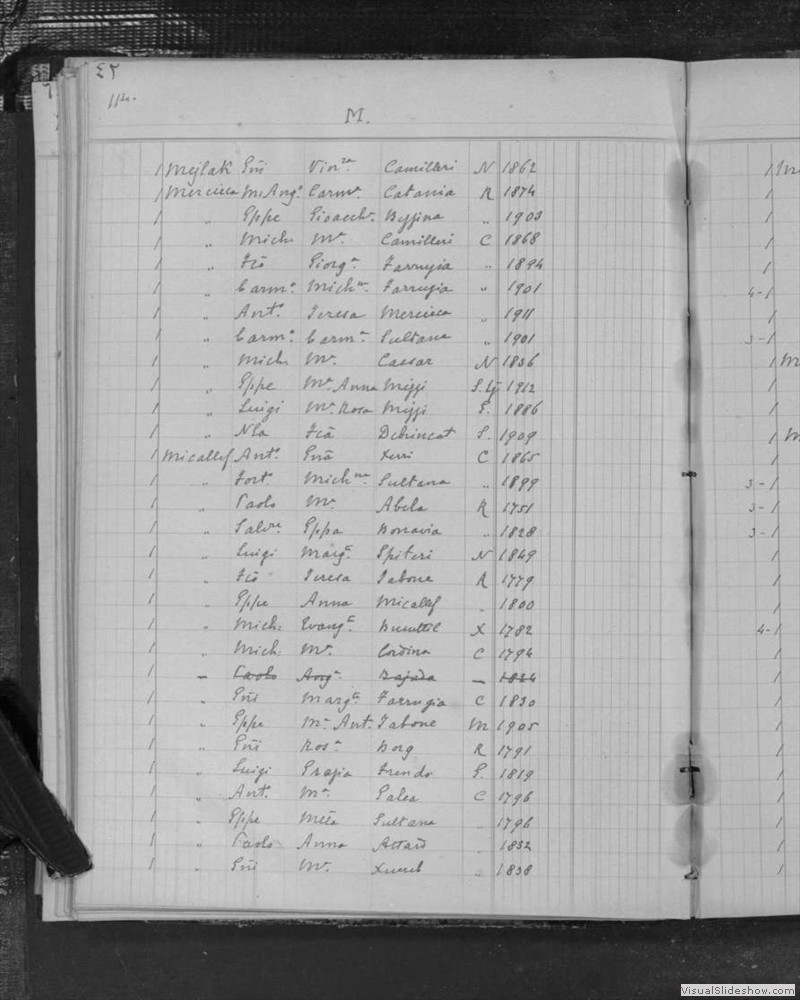 M.
1 Mejlak Gui Vinza Camilleri N 1862
1 Mercieca M. Ango Carma Catania R 1874
1 " Gppe Gioacch. Buggina " 1903
1 " Mich. Ma Camilleri C 1868
1 " Frco Giorga Farrugia " 1894
1 " Carmo Michna Farrugia " 1901
1 " Anto Teresa Mercieca " 1911
1 " Carmo Carma Sultana " 1901
1 " Mich. Ma Cassar N 1836
1 " Gppe Ma Anna Mizzi 1912
1 " Luigi Ma Rosa Mizzi G. 1886
1 " Nla Frca Debrincat S. 1909
1 Micallef Anto Gua Xerri C 1865
1 " Forto Michna Sultana " 1899
1 " Paolo Ma Abela R 1751
1 " Salvre Gppa Bonavia " 1828
1 " Luigi Marga Spiteri N 1849
1 " Frco Teresa Tabone R 1779
1 " Gppe Anna Micallef " 1800
1 " Mich. Evanga Buttigieg X 1782
1 " Mich. Ma Cordina C 1794
" Paolo Anga Rajada — 1824
1 " Gui Marga Farrugia C 1830
1 " Gppe Ma Ant. Tabone M 1905
1 " Gui Rosa Borg R 1791
1 " Luigi Grazia Frendo G. 1819
1 " Anto Ma Galea C 1796
1 " Gppe Mela Sultana " 1796
1 " Paolo Anna Attard " 1832
1 " Gui Ma Xuereb " 1838
VisualSlideshow.com